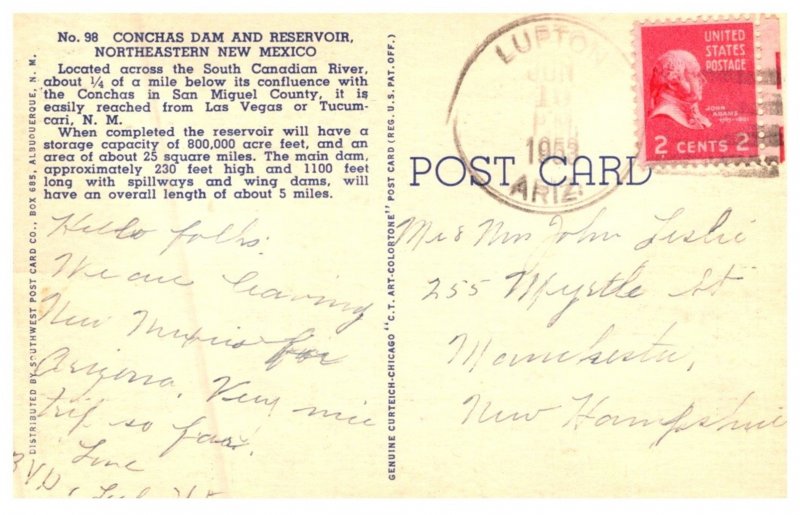 No. 98 CONCHAS DAM AND RESERVOIR,
NORTHEASTERN NEW MEXICO
Located across the South Canadian River,
about 1/4 of a mile below its confluence with
the Conchas in San Miguel County, it is
easily reached from Las Vegas or Tucum-
cari, N. M.
When completed the reservoir will have a
storage capacity of 800,000 acre feet, and an
area of about 25 square miles. The main dam,
approximately 230 feet high and 1100 feet
long with spillways and wing dams, will
have an overall length of about 5 miles.
Hello folks.
We are leaving
New Mexico for
Arizona. Very nice
trip so far.
Love
DISTRIBUTED BY SOUTHWEST POST CARD CO., BOX 685, ALBUQUERQUE, N. M.
GENUINE CURTEICH-CHICAGO "C.T. ART-COLORTONE" POST CARD (REG. U.S. PAT. OFF.)
POST CARD
LUPTON
JUN
10
P.M.
195
ARIZ.
UNITED
STATES
POSTAGE
JOHN
ADAMS
2 CENTS 2
Mr & Mrs John Leslie
255 Myrtle St
Manchester,
New Hampshire